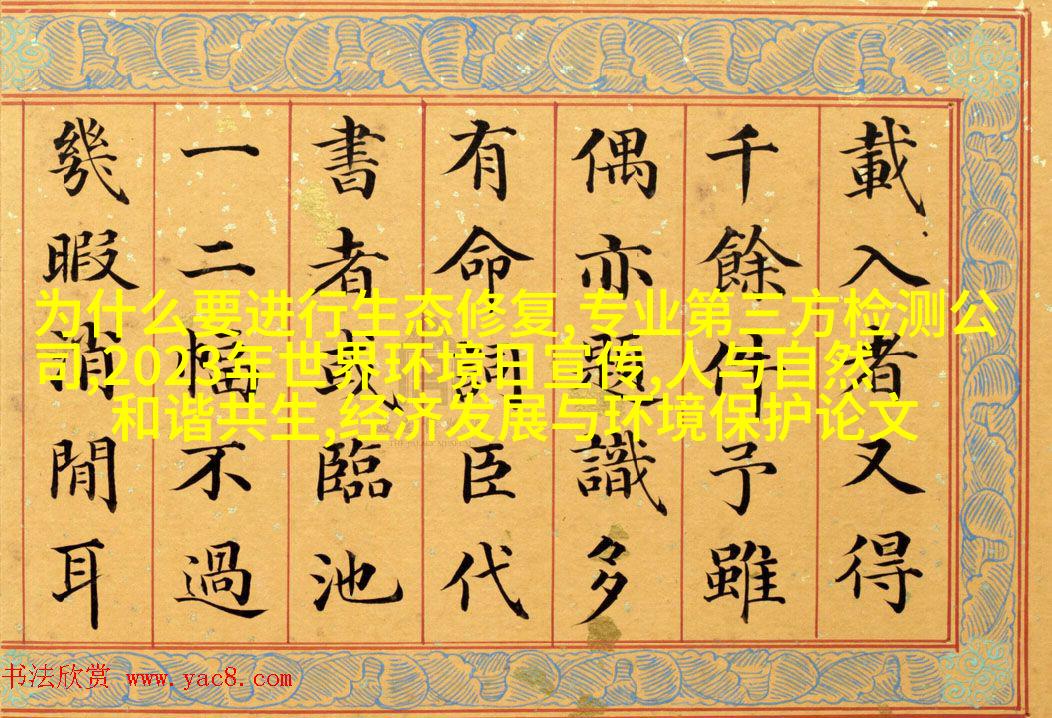 載入者又得
千餘件予雖
偶亦題識多
有命詞臣代
書者或臨池
一二幅不過
幾暇消閒耳
为什么要进行生态修复,专业第三方检测公
司,2023年世界环境日宣传,人与自然
和谐共生,经济发展与环境保护论文
THE PALACE MUSEUM
书法欣赏 www.yac8.com